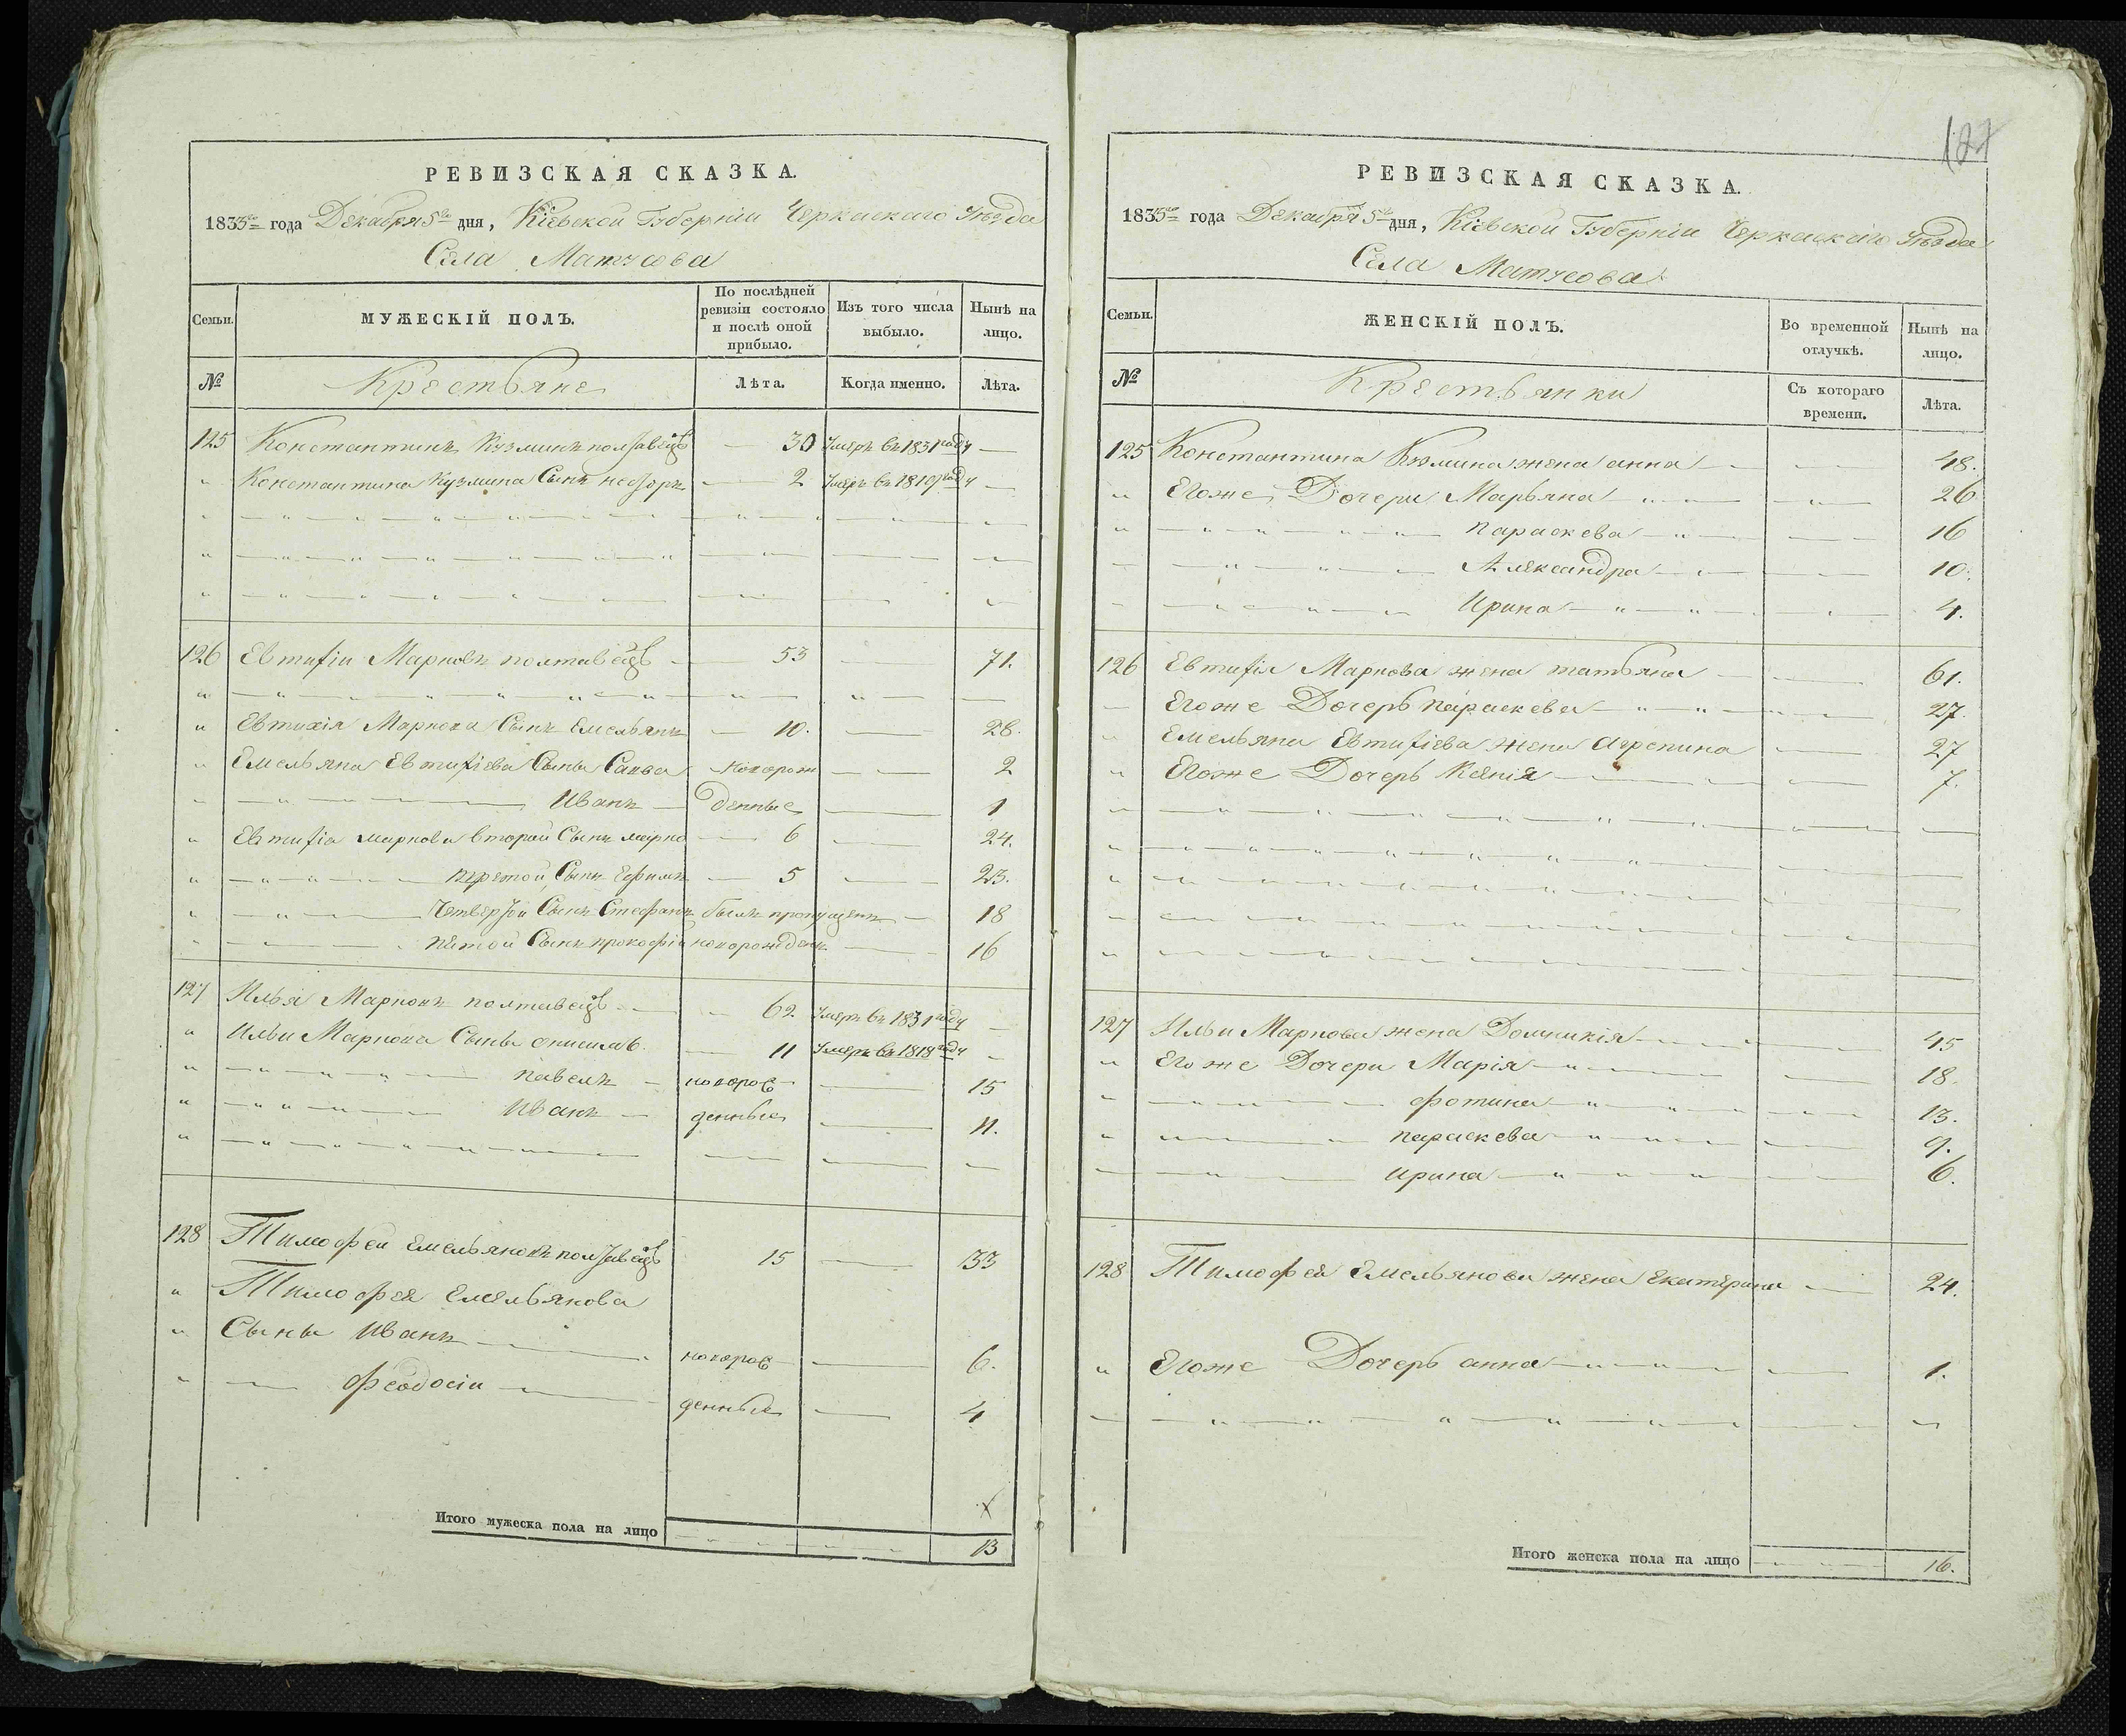 РЕВИЗСКАЯ СКАЗКА.
1835го года Декабря 5го дня, Кіевской Губерніи Черкаскаго Уѣзда
Села Матусова
Семьи. МУЖЕСКІЙ ПОЛЪ. По послѣдней ревизіи состояло и послѣ оной прибыло. Изъ того числа выбыло. Нынѣ на лицо.
№ Крестьяне Лѣта. Когда именно. Лѣта.
125 Константинъ Кузминъ полтавецъ 30 Умеръ въ 1831 году
Константина Кузмина Сынъ 2 Умеръ въ 1819 году
126 Евтифій Марковъ полтавецъ 53 71.
Евтихія Маркова Сынъ Емельянъ 10. 28.
Емельяна Евтифіева Сыны Савва новорож 2
Иванъ денные 1
Евтифія Маркова второй Сынъ марко 6 24.
третой Сынъ Ефимъ 5 23.
Четвертой Сынъ Стефанъ былъ пропущенъ 18
пятой Сынъ прокофій новорожденъ 16
127 Илья Марковъ полтавецъ 62 Умеръ въ 1831 году
Ильи Маркова Сыны 11 Умеръ въ 1818 году
павелъ новорож 15
Иванъ денные 11.
128 Тимофей Емельяновъ полтавецъ 15 33
Тимофея Емельянова
Сыны Иванъ новорож 6.
Феодосій денные 4
Итого мужеска пола на лицо 13
127
РЕВИЗСКАЯ СКАЗКА.
1835го года Декабря 5го дня, Кіевской Губерніи Черкаскаго Уѣзда
Села Матусова
Семьи. ЖЕНСКІЙ ПОЛЪ. Во временной отлучкѣ. Нынѣ на лицо.
№ Крестьянки Съ котораго времени. Лѣта.
125 Константина Кузмина жена анна 48.
Егоже Дочери Марьяна 26
параскева 16
Александра 10.
Ирина 4.
126 Евтифія Маркова жена татьяна 61.
Егоже Дочерь параскева 27.
Емельяна Евтифіева жена Агрепина 27
Егоже Дочерь Ксенія 7.
127 Ильи Маркова жена Домникія 45
Егоже Дочери Марія 18.
фотина 13.
параскева 9.
ирина 6.
128 Тимофея Емельянова жена Екатерина 24.
Егоже Дочерь анна 1.
Итого женска пола на лицо 16.